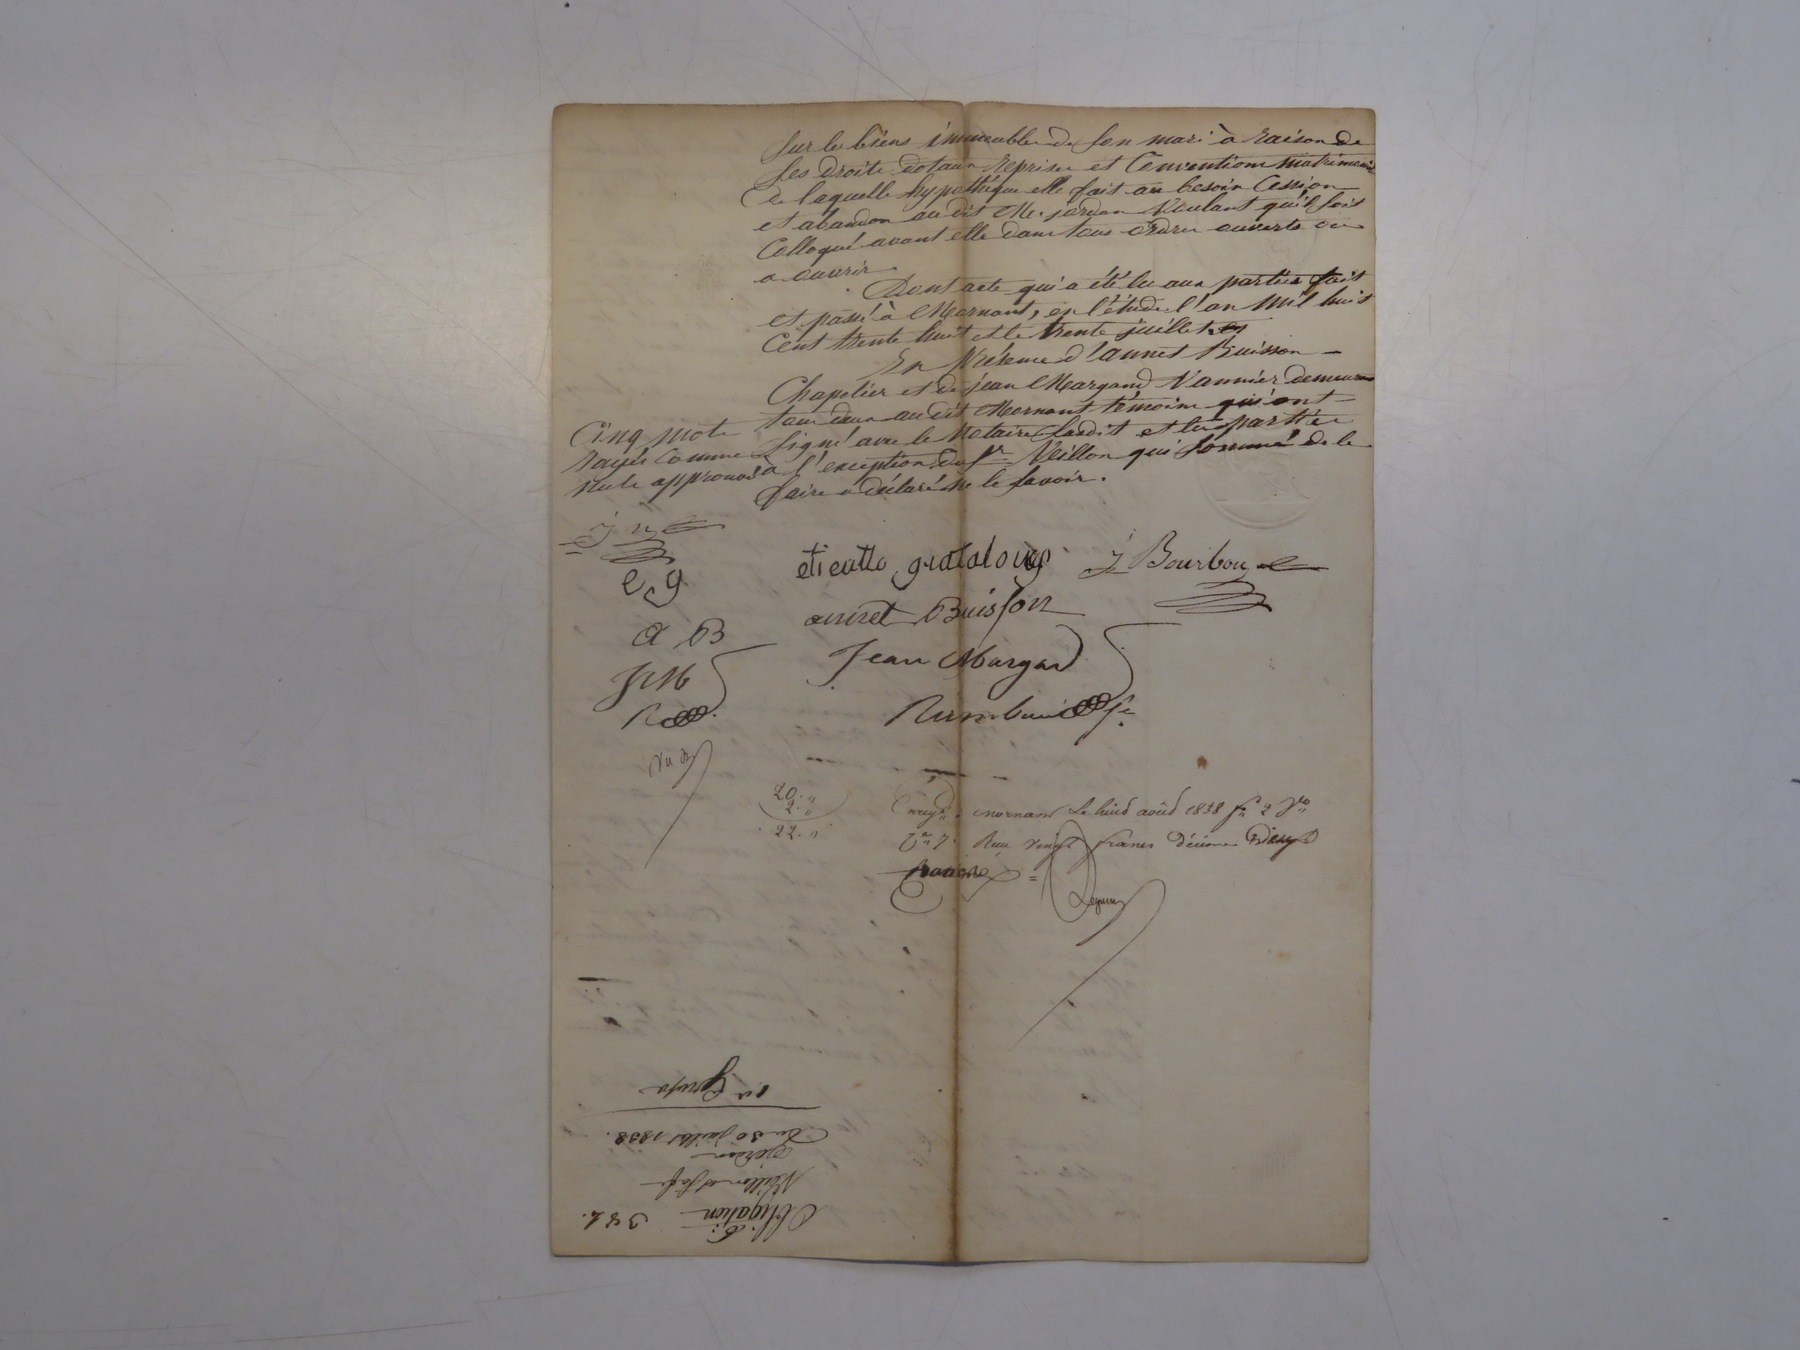 sur les biens immeubles de son mari à raison de
ses droits dotaux reprises et conventions matrimoni
de laquelle hypothèque elle fait au besoin cession
et abandon au dit Mr. jardon voulant qu'il soit
colloqué avant elle dans tous ordres ouverts ou
a ouvrir
Dont acte qui a été lu aux parties fait
et passé à Mornant, en l'étude l'an mil huit
cent trente huit et le trente juillet
En présence d'annet Buisson
Chapelier et de jean Margand vannier demeurans
tous deux au dit Mornant témoins qui ont
signé avec le Notaire susdit et les parties
à l'exception du sr. Veillon qui sommé de le
faire a déclaré ne le savoir.
Cinq mots
rayés comme
nuls approuvés
e g
a B
JM
etientte grataloup
J Bourbon
annet Buisson
Jean Margand
20. "
2. "
22. "
Enregé. à mornant le huit août 1838 fo. 2 Vo.
Ce. 7. Reçu vingt francs décime deux
francs
381.
Obligation
Veillon et
jardon
Du 30 juillet 1838.
1re Grosse